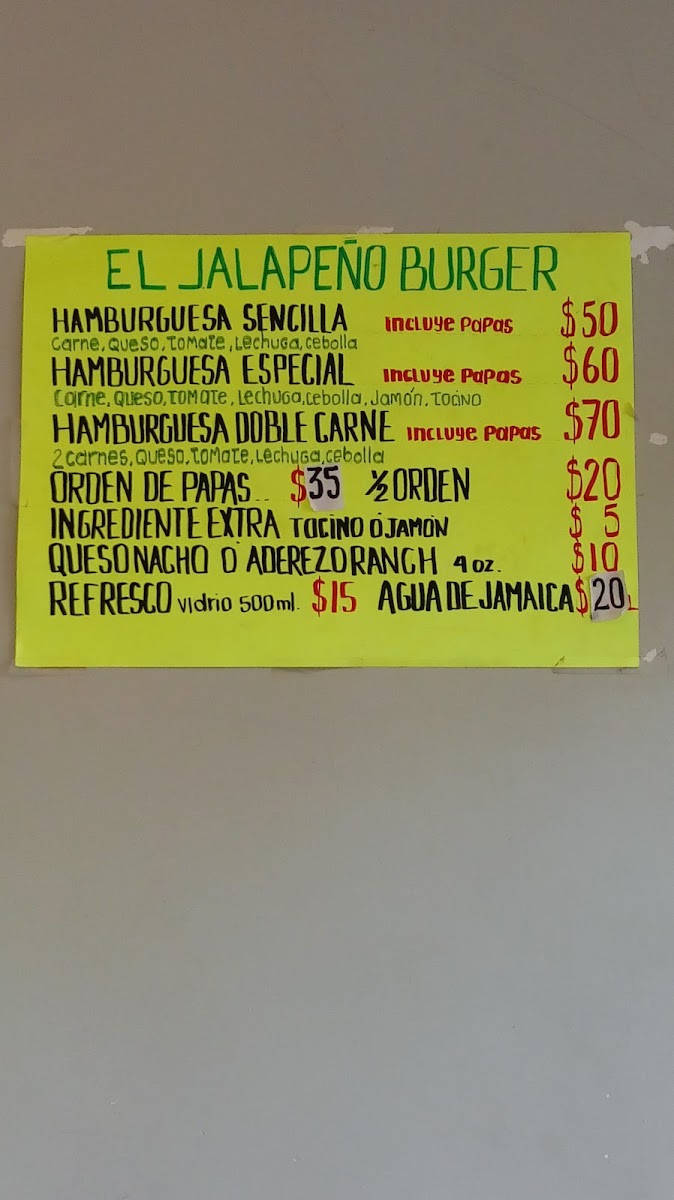 EL JALAPEÑO BURGER
HAMBURGUESA SENCILLA INCLUYE PAPAS $50
Carne, QUESO, TOMATE, Lechuga, cebolla
HAMBURGUESA ESPECIAL INCLUYE PAPAS $60
Carne, QUESO, TOMATE, Lechuga, cebolla, Jamón, TOCINO
HAMBURGUESA DOBLE CARNE INCLUYE PAPAS $70
2 carnes, QUESO, TOMATE, Lechuga, cebolla
ORDEN DE PAPAS.. $35 ½ ORDEN $20
INGREDIENTE EXTRA TOCINO Ó JAMÓN $ 5
QUESO NACHO O ADEREZO RANCH 4 oz. $10
REFRESCO vidrio 500 ml. $15 AGUA DE JAMAICA $20